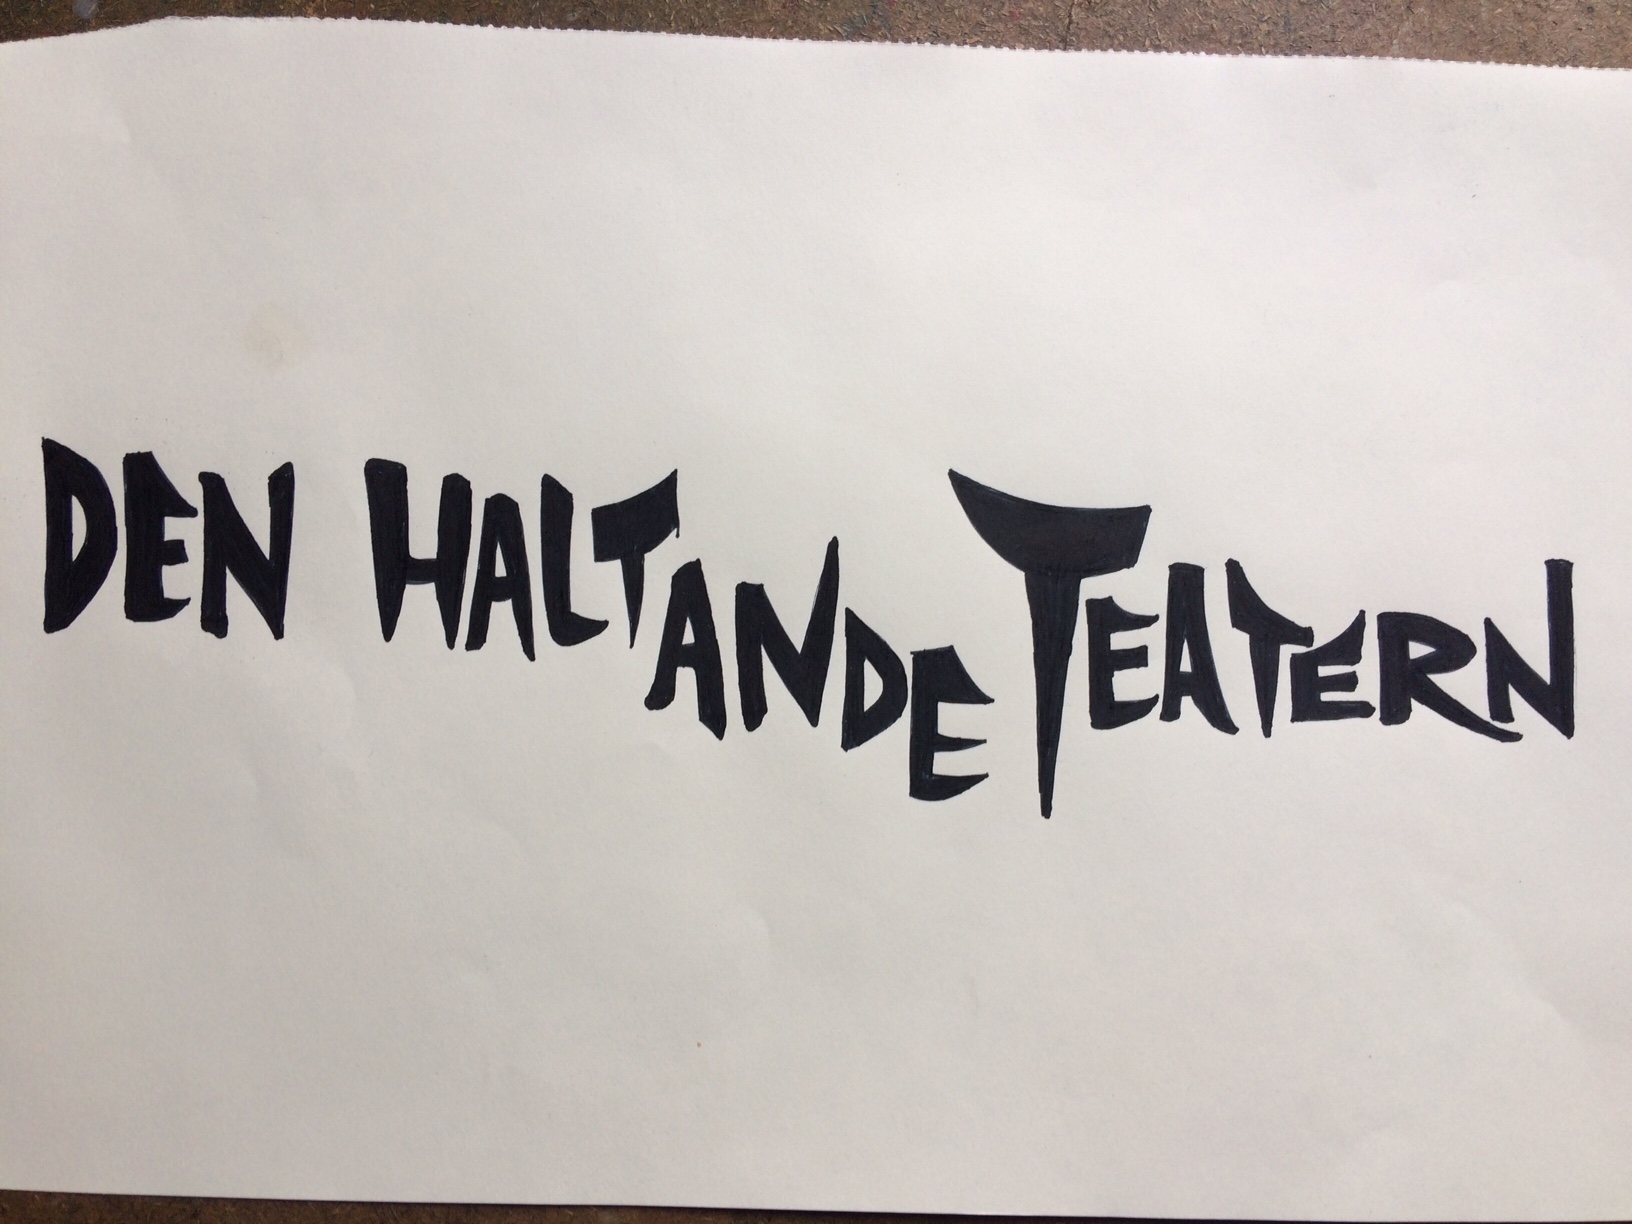 DEN HALTANDE TEATERN